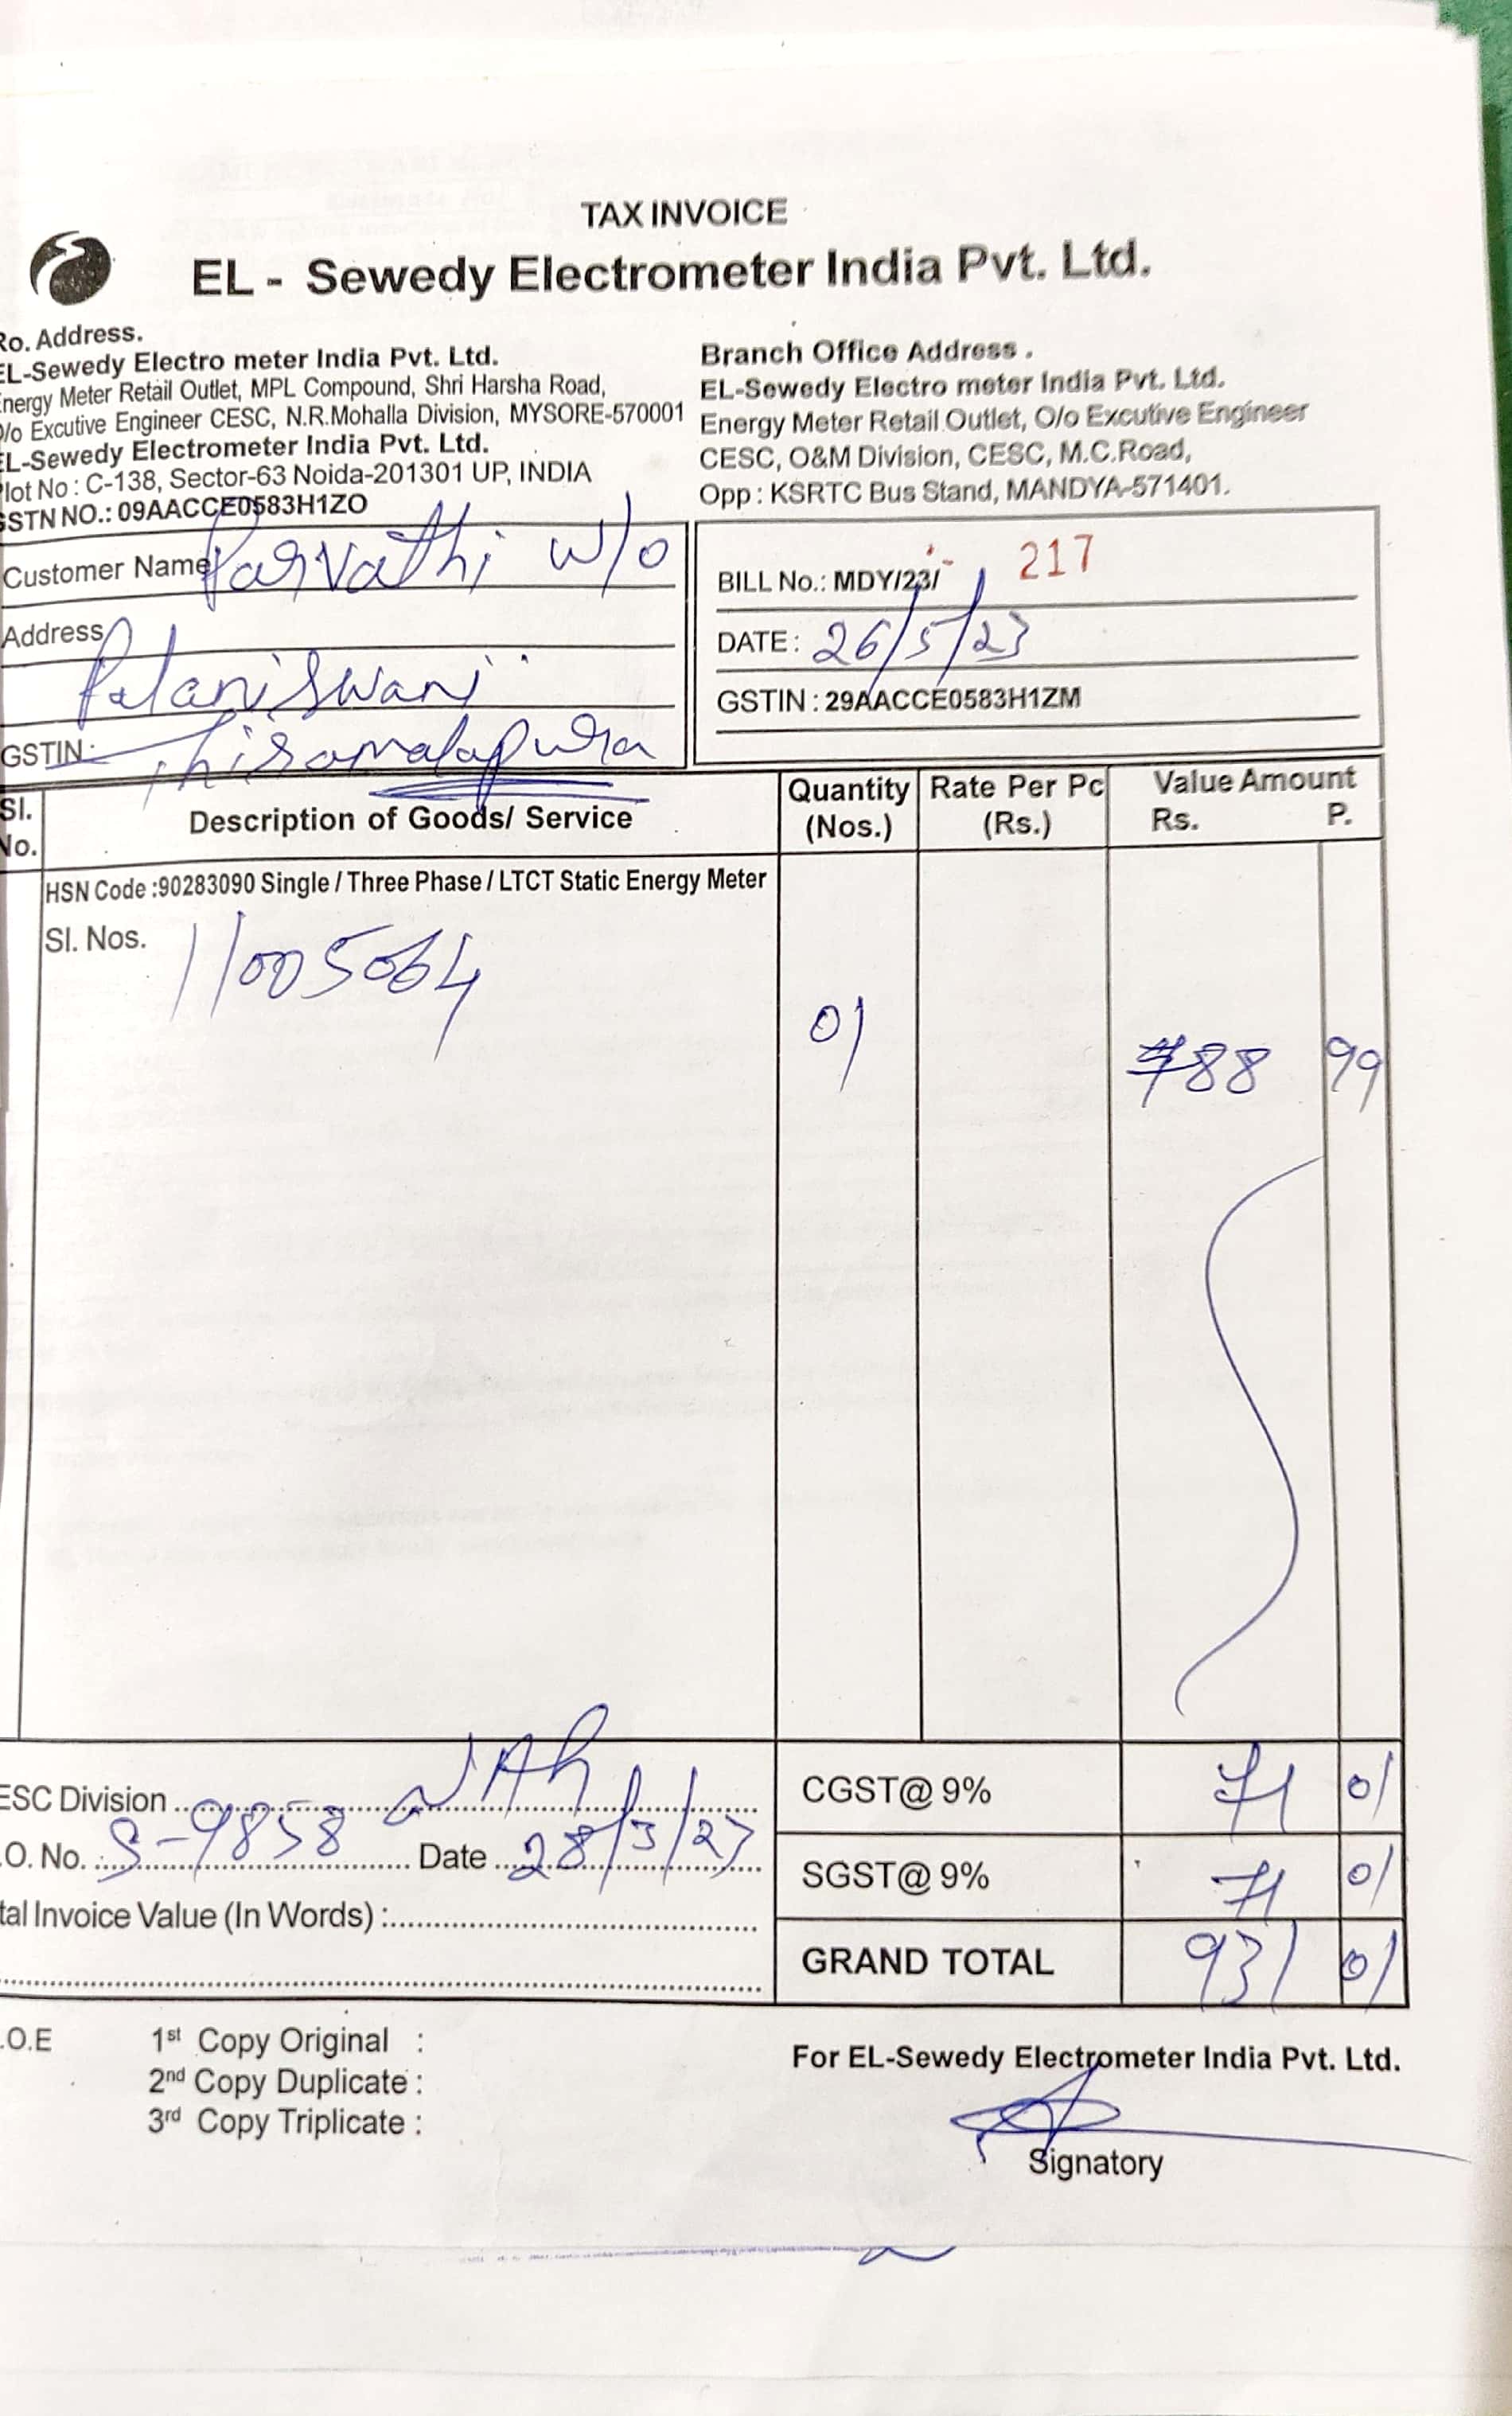 TAX INVOICE
EL - Sewedy Electrometer India Pvt. Ltd.
Ro. Address.
EL-Sewedy Electro meter India Pvt. Ltd.
nergy Meter Retail Outlet, MPL Compound, Shri Harsha Road,
/o Excutive Engineer CESC, N.R.Mohalla Division, MYSORE-570001
EL-Sewedy Electrometer India Pvt. Ltd.
lot No : C-138, Sector-63 Noida-201301 UP, INDIA
GSTN NO.: 09AACCE0583H1ZO
Branch Office Address .
EL-Sewedy Electro meter India Pvt. Ltd.
Energy Meter Retail Outlet, O/o Excutive Engineer
CESC, O&M Division, CESC, M.C.Road,
Opp : KSRTC Bus Stand, MANDYA-571401.
Customer Name Parvathi w/o
Address
Palaniswani
GSTIN :
BILL No.: MDY/23/ 217
DATE : 26/5/23
GSTIN : 29AACCE0583H1ZM
Sl. No. Description of Goods/ Service Quantity (Nos.) Rate Per Pc (Rs.) Value Amount Rs. P.
HSN Code :90283090 Single / Three Phase / LTCT Static Energy Meter
Sl. Nos. 11005064
01 788 99
ESC Division
.O. No. S-9858 Date 28/3/23
tal Invoice Value (In Words) :
CGST@ 9% 71 01
SGST@ 9% 71 01
GRAND TOTAL 931 01
.O.E
1st Copy Original :
2nd Copy Duplicate :
3rd Copy Triplicate :
For EL-Sewedy Electrometer India Pvt. Ltd.
Signatory